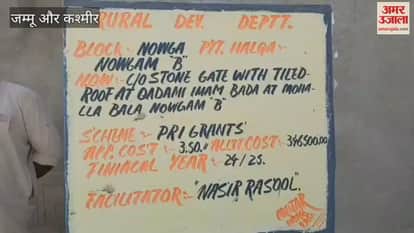 जम्मू और कश्मीर
अमर उजाला
amarujala.com
RURAL DEV. DEPTT.
BLOCK:- NOWGA PYT. HALQA:-
NOWGAM "B"
NOW:- C/O STONE GATE WITH TILED
ROOF AT DADAMI IMAM BADA AT MOHA-
LLA BALA NOWGAM "B"
SCHEME:- PRI GRANTS'
APP. COST:- 3.50 ALLTT.COST:- 346500.00
FINIACAL YEAR:- 24/25.
FACILITATOR:- "NASIR RASOOL".